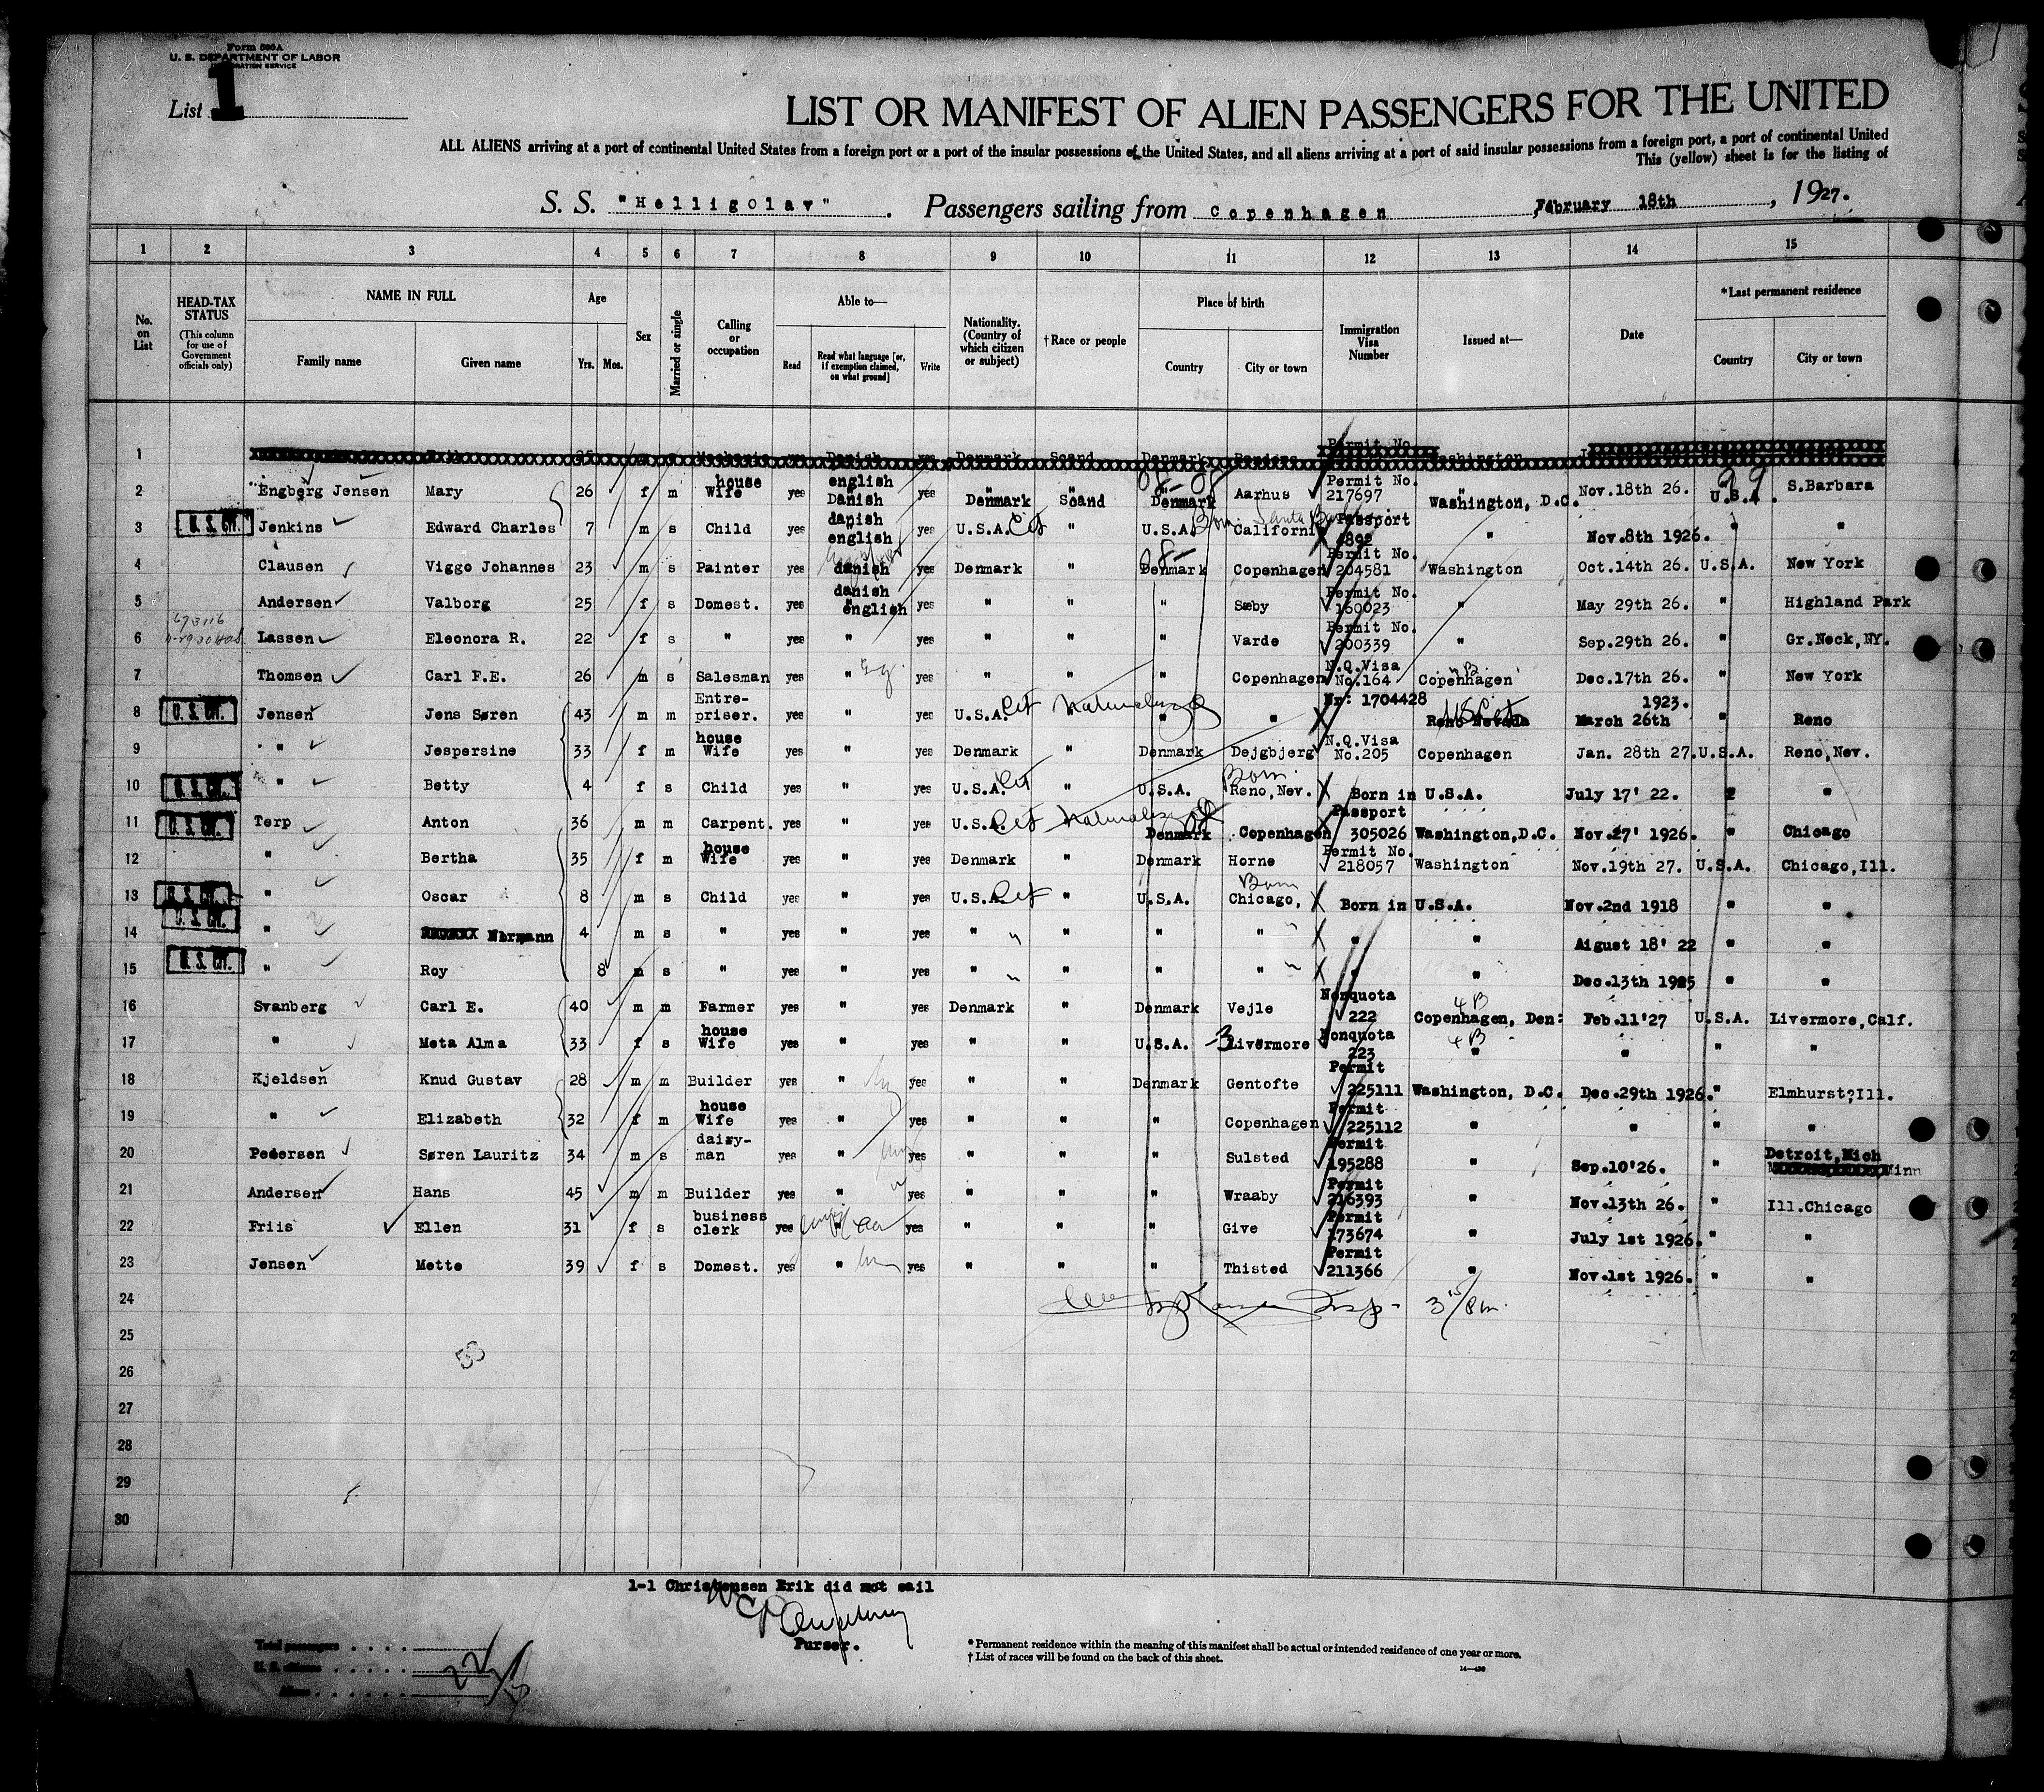 Form 500A
U. S. DEPARTMENT OF LABOR
IMMIGRATION SERVICE
List 1
LIST OR MANIFEST OF ALIEN PASSENGERS FOR THE UNITED
ALL ALIENS arriving at a port of continental United States from a foreign port or a port of the insular possessions of the United States, and all aliens arriving at a port of said insular possessions from a foreign port, a port of continental United
This (yellow) sheet is for the listing of
S. S. "Helligolav". Passengers sailing from Copenhagen, February 18th, 1927.
1 2 3 4 5 6 7 8 9 10 11 12 13 14 15
No. on List
HEAD-TAX STATUS (This column for use of Government officials only)
NAME IN FULL Family name Given name
Age Yrs. Mos.
Sex
Married or single
Calling or occupation
Able to— Read Read what language [or, if exemption claimed, on what ground] Write
Nationality. (Country of which citizen or subject)
†Race or people
Place of birth Country City or town
Immigration Visa Number
Issued at—
Date
*Last permanent residence Country City or town
1 Danish Denmark Scand Denmark Permit No.
2 Engberg Jensen Mary 26 f m house Wife yes english Danish yes Denmark Scand Denmark Aarhus Permit No. 217697 Washington, D.C. Nov.18th 26. U.S.A. S.Barbara
3 U.S. CIT. Jenkins Edward Charles 7 m s Child yes danish english yes U.S.A. Cit " U.S.A. Born California Passport 4892 " Nov.8th 1926. " "
4 Clausen Viggo Johannes 23 m s Painter yes danish yes Denmark " Denmark Copenhagen Permit No. 204581 Washington Oct.14th 26. U.S.A. New York
5 Andersen Valborg 25 f s Domest. yes danish english yes " " " Sæby Permit No. 160023 " May 29th 26. " Highland Park
6 Lassen Eleonora R. 22 f s " yes " yes " " " Varde Permit No. 200339 " Sep.29th 26. " Gr.Neck,NY.
7 Thomsen Carl F.E. 26 m s Salesman yes " yes " " " Copenhagen N.Q.Visa No.164 Copenhagen Dec.17th 26. " New York
8 U.S. CIT. Jensen Jens Søren 43 m m Entre-priser. yes " yes U.S.A. Cit Naturalized " " " Nr: 1704428 Reno Nevada US Cit March 26th 1923. " Reno
9 " Jespersine 33 f m house Wife yes " yes Denmark " Denmark Dejgbjerg N.Q.Visa No.205 Copenhagen Jan. 28th 27. U.S.A. Reno,Nev.
10 U.S. CIT. " Betty 4 f s Child yes " yes U.S.A. Cit " U.S.A. Born Reno,Nev. X Born in U.S.A. July 17' 22. " "
11 U.S. CIT. Terp Anton 36 m m Carpent. yes " yes U.S.A. Cit Naturalized Denmark Copenhagen Passport 305026 Washington,D.C. Nov.27' 1926. " Chicago
12 " Bertha 35 f m house Wife yes " yes Denmark " Denmark Horne Permit No. 218057 Washington Nov.19th 27. U.S.A. Chicago,Ill.
13 U.S. CIT. " Oscar 8 m s Child yes " yes U.S.A. Cit " U.S.A. Born Chicago, X Born in U.S.A. Nov.2nd 1918 " "
14 U.S. CIT. " Normann 4 m s " yes " yes " " " " X " " Aigust 18' 22 " "
15 U.S. CIT. " Roy 8 m s " yes " yes " " " " X " " Dec.13th 1925 " "
16 Svanberg Carl E. 40 m m Farmer yes " yes Denmark " Denmark Vejle Nonquota 222 4 B Copenhagen, Den: Feb.11'27 U.S.A. Livermore,Calf.
17 " Meta Alma 33 f s house Wife yes " yes " " U.S.A. Livermore Nonquota 223 4 B " " " "
18 Kjeldsen Knud Gustav 28 m m Builder yes " yes " " Denmark Gentofte Permit 225111 Washington, D.C. Dec.29th 1926. " Elmhurst,Ill.
19 " Elizabeth 32 f m house Wife yes " yes " " " Copenhagen Permit 225112 " " " "
20 Pedersen Søren Lauritz 34 m s dairy-man yes " yes " " " Sulsted Permit 195288 " Sep.10'26. " Detroit,Mich
21 Andersen Hans 45 m m Builder yes " yes " " " Wraaby Permit 216393 " Nov.13th 26. " Ill.Chicago
22 Friis Ellen 31 f s business clerk yes " yes " " " Give Permit 173674 " July 1st 1926. " "
23 Jensen Mette 39 f s Domest. yes " yes " " " Thisted Permit 211366 " Nov.1st 1926. " "
24
25
26
27
28
29
30
1-1 Christensen Erik did not sail
Purser.
Total passengers
U. S. citizens
Aliens
* Permanent residence within the meaning of this manifest shall be actual or intended residence of one year or more.
† List of races will be found on the back of this sheet.